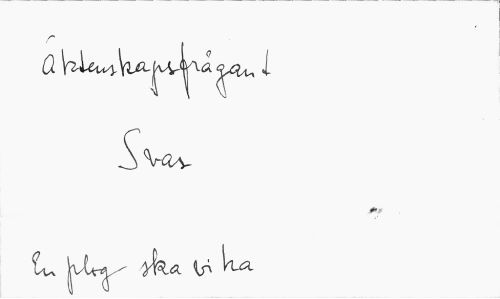 Äktenskapsfrågan t
Svar
En plog ska vi ha